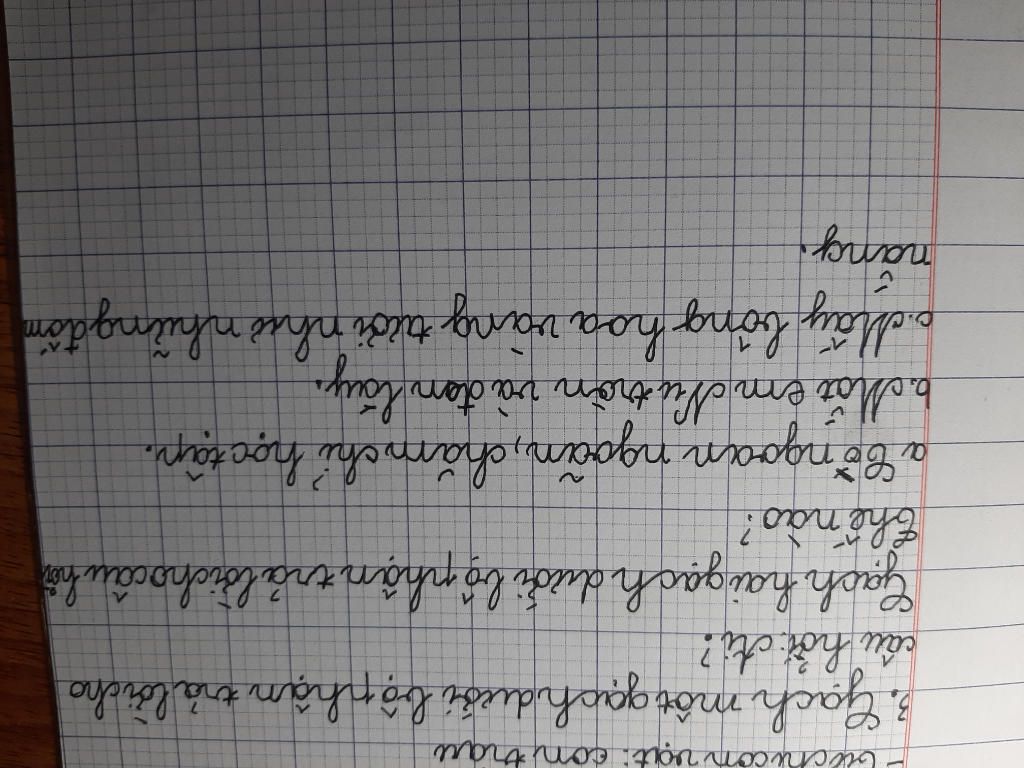 - Từ chỉ con vật: con trâu
3. Gạch một gạch dưới bộ phận trả lời cho
câu hỏi: Ai?
Gạch hai gạch dưới bộ phận trả lời cho câu hỏi
Thế nào?
a ngoan ngoãn, chăm chỉ học tập.
b. Mắt em tròn và đen láy.
c. Mấy bông hoa vàng tươi như những đốm
nắng.